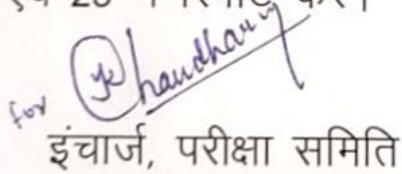 for Chaudhary
इंचार्ज, परीक्षा समिति